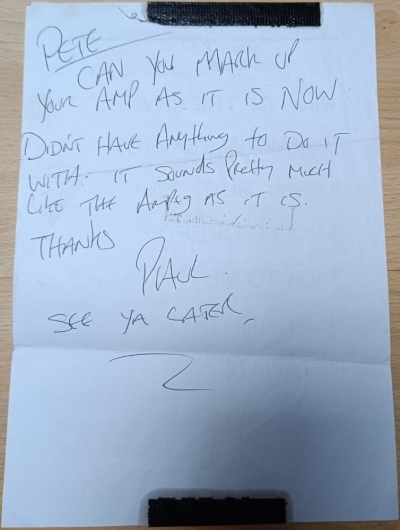 PETE
CAN YOU MARK UP
YOUR AMP AS IT IS NOW.
DIDN'T HAVE ANYTHING TO DO IT
WITH. IT SOUNDS PRETTY MUCH
LIKE THE AMPEG AS IT IS.
THANKS
PAUL.
SEE YA LATER,